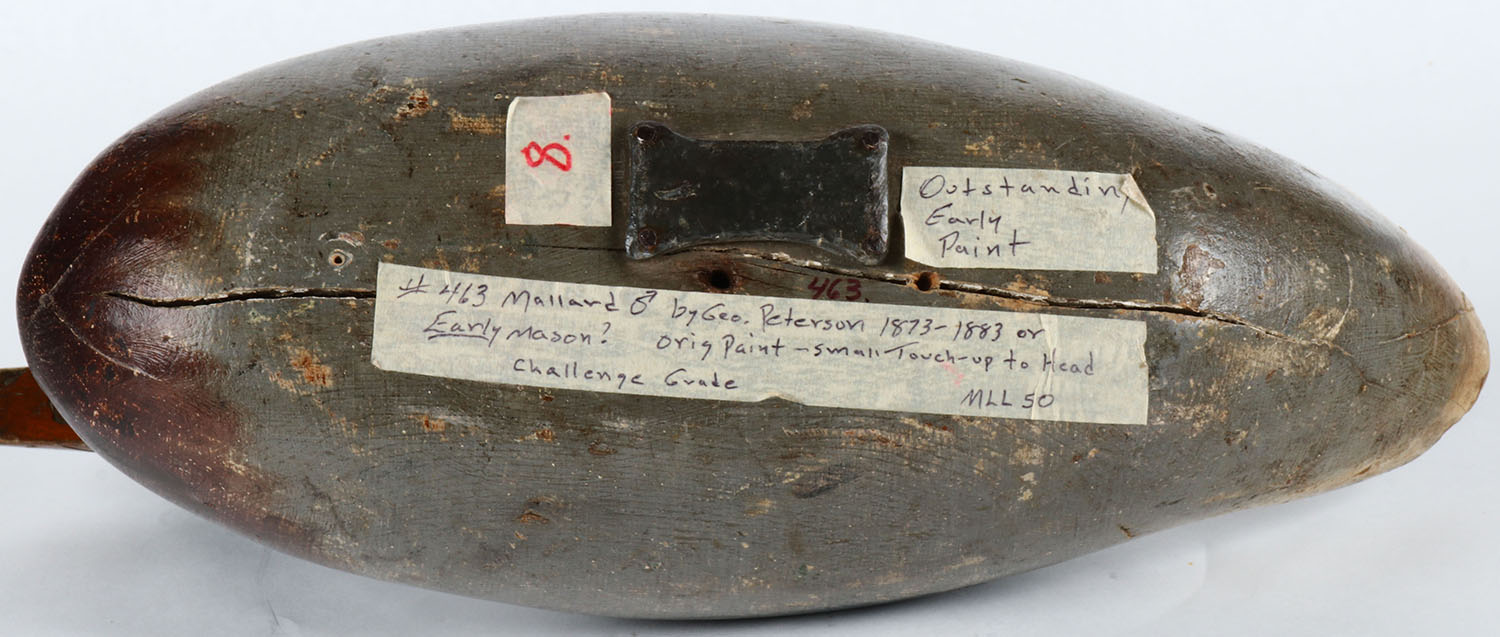 8.
Outstanding
Early
Paint
463.
# 463 Mallard ♂ by Geo. Peterson 1873-1883 or
Early Mason? Orig Paint - Small Touch-up to Head
Challenge Grade
MLL 50